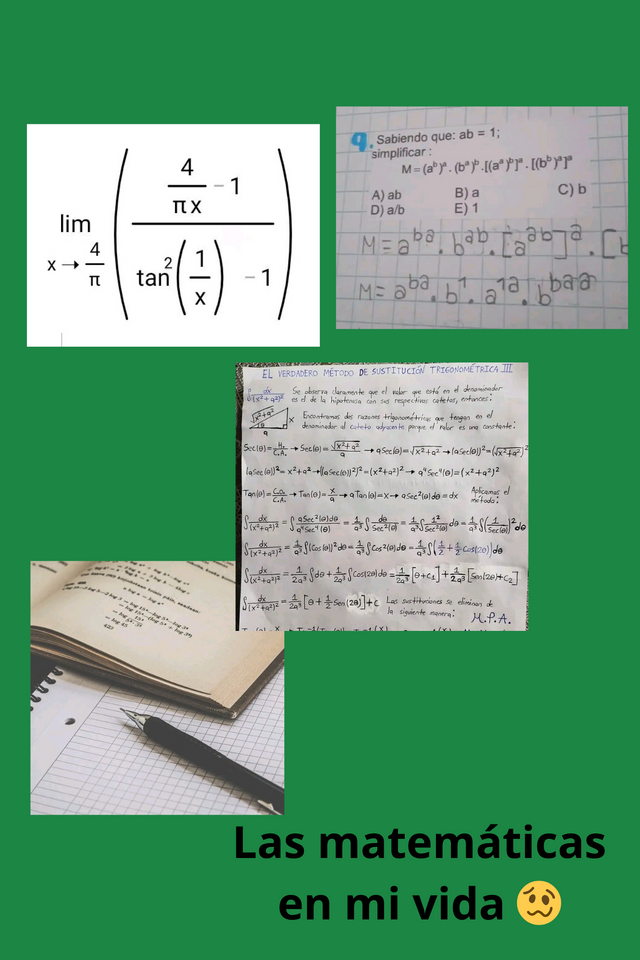 lim
x → 4/π
( (4/(πx) − 1) / (tan²(1/x) − 1) )
9. Sabiendo que: ab = 1;
simplificar :
M = (aᵇ)ᵃ . (bᵃ)ᵇ .[(aᵃ)ᵇ]ᵃ . [(bᵇ)ᵃ]ᵃ
A) ab B) a C) b
D) a/b E) 1
M = aᵇᵃ . bᵃᵇ . [aᵃᵇ]ᵃ . [b
M = aᵇᵃ . b¹ . a¹ᵃ . bᵇᵃᵃ
EL VERDADERO MÉTODO DE SUSTITUCIÓN TRIGONOMÉTRICA III
∫ dx/(x²+a²)² Se observa claramente que el valor que está en el denominador
es el de la hipotenusa con sus respectivos catetos, entonces:
√x²+a² x θ a
Encontramos dos razones trigonométricas que tengan en el
denominador al cateto adyacente porque el valor es una constante:
Sec(θ) = H./C.A. → Sec(θ) = √x²+a²/a → aSec(θ) = √x²+a² → (aSec(θ))² = (√x²+a²)²
(aSec(θ))² = x²+a² → ((aSec(θ))²)² = (x²+a²)² → a⁴Sec⁴(θ) = (x²+a²)²
Tan(θ) = C.O./C.A. → Tan(θ) = x/a → aTan(θ) = x → aSec²(θ)dθ = dx Aplicamos el
método:
∫ dx/(x²+a²)² = ∫ aSec²(θ)dθ/a⁴Sec⁴(θ) = 1/a³ ∫ dθ/Sec²(θ) = 1/a³ ∫ 1²/Sec²(θ) dθ = 1/a³ ∫ (1/Sec(θ))² dθ
∫ dx/(x²+a²)² = 1/a³ ∫ (Cos(θ))² dθ = 1/a³ ∫ Cos²(θ)dθ = 1/a³ ∫ (1/2 + 1/2 Cos(2θ)) dθ
∫ dx/(x²+a²)² = 1/2a³ ∫ dθ + 1/2a³ ∫ Cos(2θ)dθ = 1/2a³ [θ+C₁] + 1/2a³ [Sen(2θ)+C₂]
∫ dx/(x²+a²)² = 1/2a³ [θ + 1/2 Sen(2θ)] + C Las sustituciones se eliminan de
la siguiente manera:
M.P.A.
Las matemáticas
en mi vida 🥴